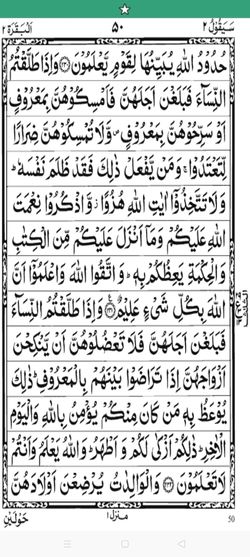 سَيَقُوْلُ ٢ ٥٠ اَلْبَقَرَة ٢
حُدُوْدُ اللّٰهِ يُبَيِّنُهَا لِقَوْمٍ يَّعْلَمُوْنَ ﴿٢٣٠﴾ وَاِذَا طَلَّقْتُمُ
النِّسَآءَ فَبَلَغْنَ اَجَلَهُنَّ فَاَمْسِكُوْهُنَّ بِمَعْرُوْفٍ
اَوْ سَرِّحُوْهُنَّ بِمَعْرُوْفٍ ۪ وَّلَا تُمْسِكُوْهُنَّ ضِرَارًا
لِّتَعْتَدُوْا ۚ وَمَنْ يَّفْعَلْ ذٰلِكَ فَقَدْ ظَلَمَ نَفْسَهٗ ؕ
وَلَا تَتَّخِذُوْٓا اٰيٰتِ اللّٰهِ هُزُوًا ؗ وَّاذْكُرُوْا نِعْمَتَ
اللّٰهِ عَلَيْكُمْ وَمَآ اَنْزَلَ عَلَيْكُمْ مِّنَ الْكِتٰبِ
وَالْحِكْمَةِ يَعِظُكُمْ بِهٖ ؕ وَاتَّقُوا اللّٰهَ وَاعْلَمُوْٓا اَنَّ
اللّٰهَ بِكُلِّ شَىْءٍ عَلِيْمٌ ﴿٢٣١﴾ وَاِذَا طَلَّقْتُمُ النِّسَآءَ
فَبَلَغْنَ اَجَلَهُنَّ فَلَا تَعْضُلُوْهُنَّ اَنْ يَّنْكِحْنَ
اَزْوَاجَهُنَّ اِذَا تَرَاضَوْا بَيْنَهُمْ بِالْمَعْرُوْفِ ؕ ذٰلِكَ
يُوْعَظُ بِهٖ مَنْ كَانَ مِنْكُمْ يُؤْمِنُ بِاللّٰهِ وَالْيَوْمِ
الْاٰخِرِ ؕ ذٰلِكُمْ اَزْكٰى لَكُمْ وَاَطْهَرُ ؕ وَاللّٰهُ يَعْلَمُ وَاَنْتُمْ
لَا تَعْلَمُوْنَ ﴿٢٣٢﴾ وَالْوَالِدٰتُ يُرْضِعْنَ اَوْلَادَهُنَّ
حَوْلَيْنِ منزل ١ 50